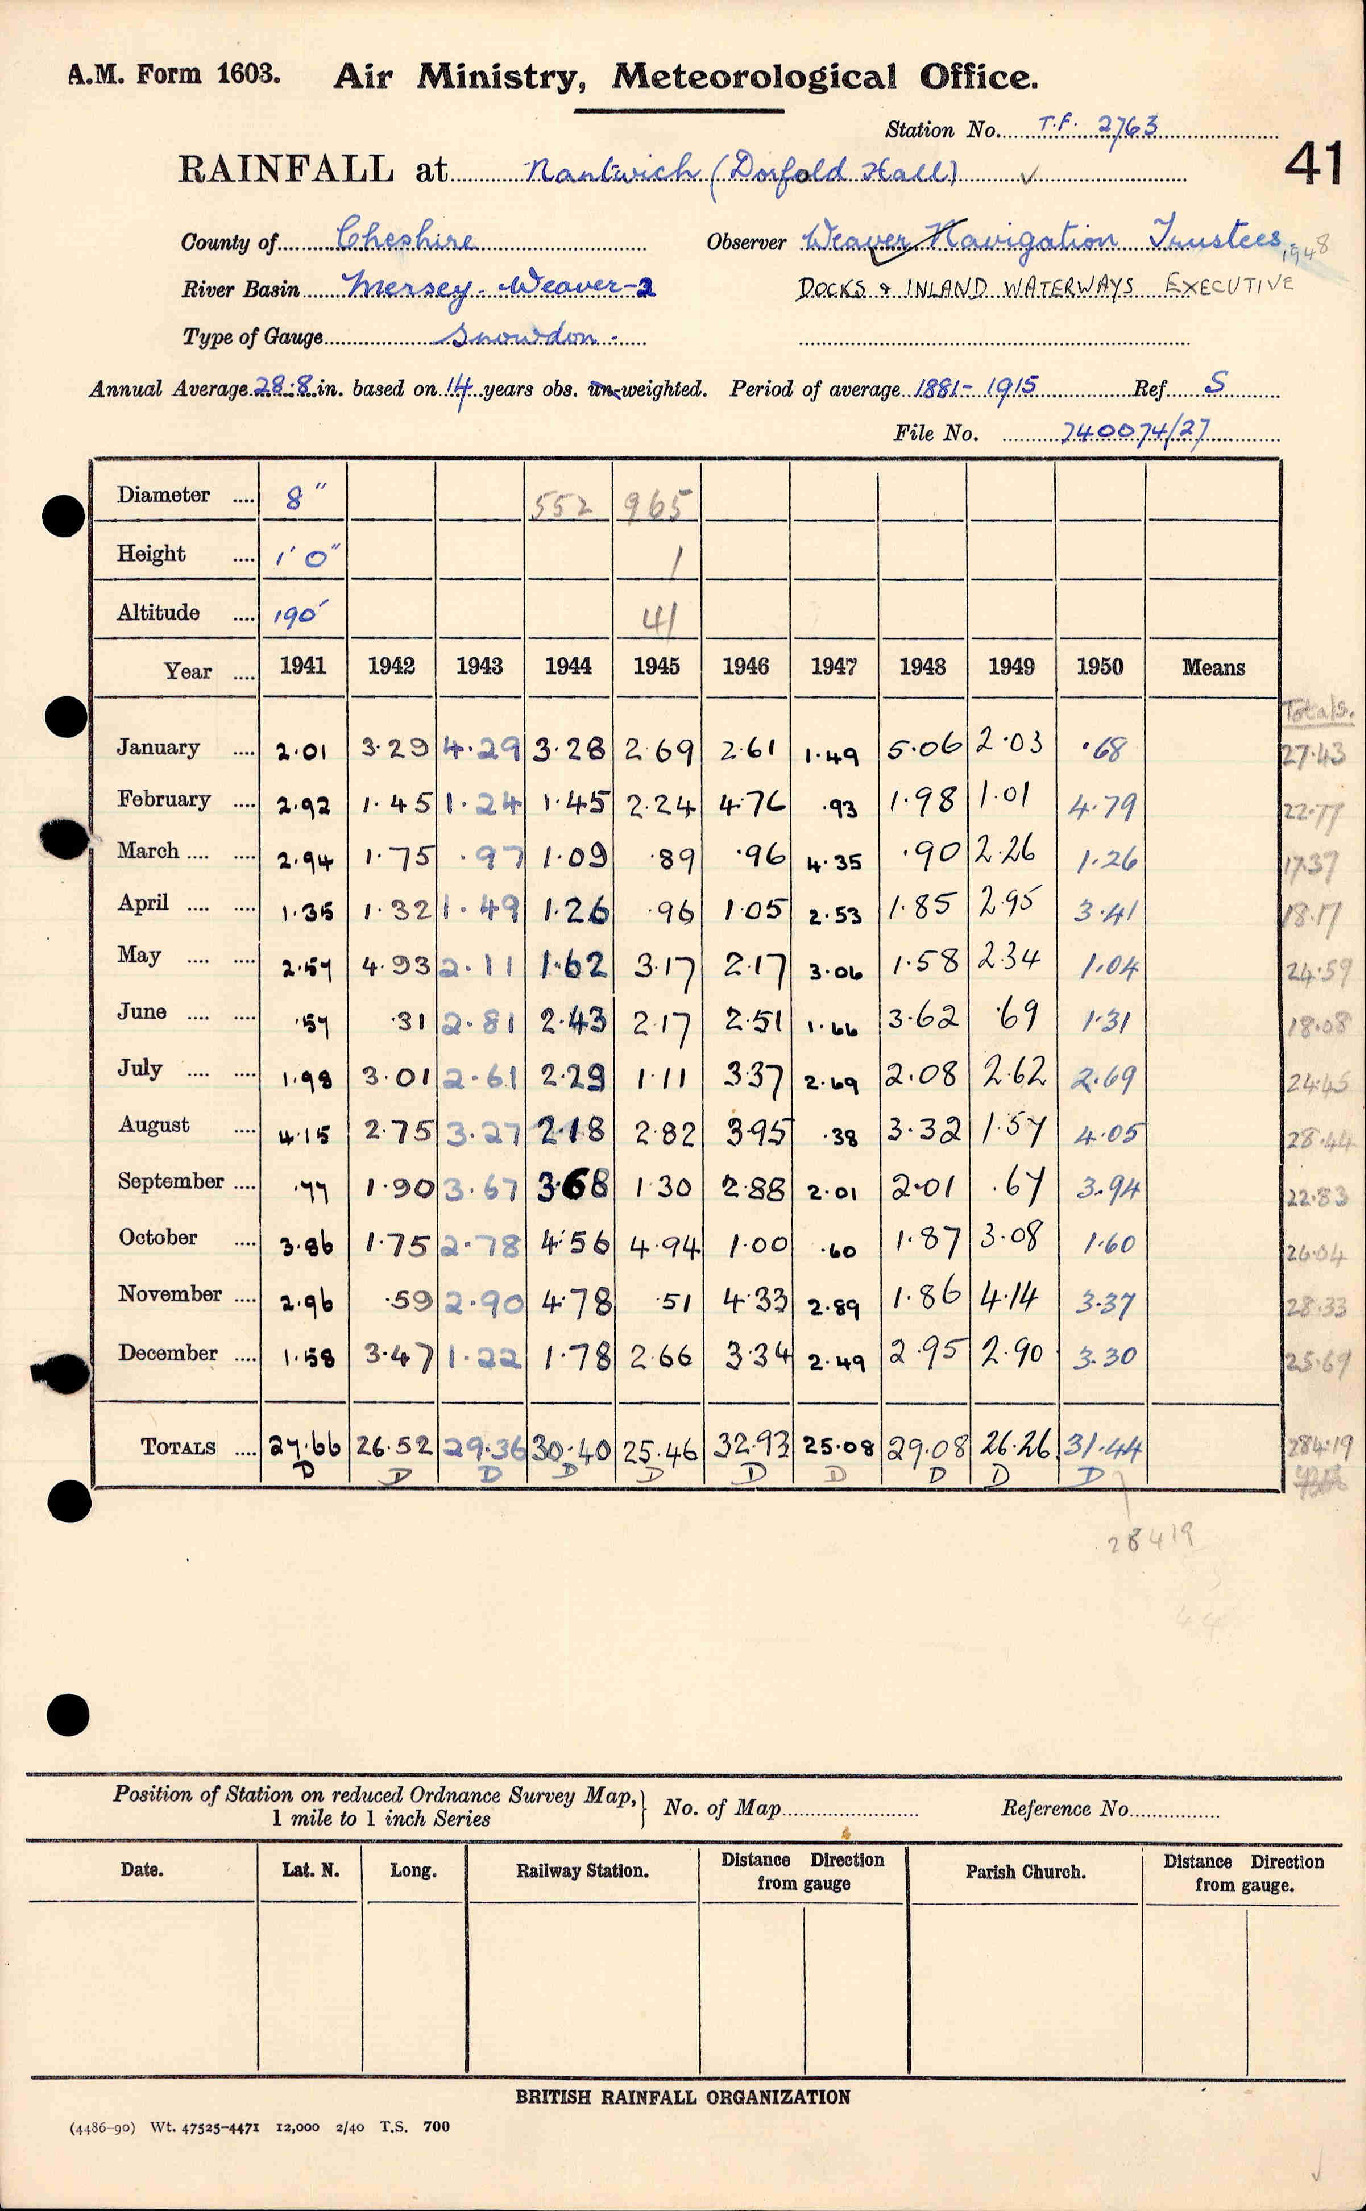 A.M. Form 1603. Air Ministry, Meteorological Office.
Station No. T.F. 2763
41
RAINFALL at Nantwich (Dorfold Hall) ✓
County of Cheshire Observer Weaver Navigation Trustees. 1948
River Basin Mersey - Weaver-2 DOCKS & INLAND WATERWAYS EXECUTIVE
Type of Gauge Snowdon.
Annual Average 28.8 in. based on 14 years obs. un-weighted. Period of average 1881-1915 Ref. S
File No. 740074/27
Diameter .... 8" 552 965
Height .... 1' 0" 1
Altitude .... 190' 41
Year .... 1941 1942 1943 1944 1945 1946 1947 1948 1949 1950 Means
Totals.
January .... 2.01 3.29 4.29 3.28 2.69 2.61 1.49 5.06 2.03 .68 27.43
February .... 2.92 1.45 1.24 1.45 2.24 4.76 .93 1.98 1.01 4.79 22.77
March .... .... 2.94 1.75 .97 1.09 .89 .96 4.35 .90 2.26 1.26 17.37
April .... .... 1.35 1.32 1.49 1.26 .96 1.05 2.53 1.85 2.95 3.41 18.17
May .... .... 2.57 4.93 2.11 1.62 3.17 2.17 3.06 1.58 2.34 1.04 24.59
June .... .... .57 .31 2.81 2.43 2.17 2.51 1.66 3.62 .69 1.31 18.08
July .... .... 1.98 3.01 2.61 2.29 1.11 3.37 2.69 2.08 2.62 2.69 24.45
August .... 4.15 2.75 3.27 2.18 2.82 3.95 .38 3.32 1.57 4.05 28.44
September .... .77 1.90 3.67 3.68 1.30 2.88 2.01 2.01 .67 3.94 22.83
October .... 3.86 1.75 2.78 4.56 4.94 1.00 .60 1.87 3.08 1.60 26.04
November .... 2.96 .59 2.90 4.78 .51 4.33 2.89 1.86 4.14 3.37 28.33
December .... 1.58 3.47 1.22 1.78 2.66 3.34 2.49 2.95 2.90 3.30 25.69
TOTALS .... 27.66 26.52 29.36 30.40 25.46 32.93 25.08 29.08 26.26 31.44 284.19
D D D D D D D D D D
28419
Position of Station on reduced Ordnance Survey Map,} No. of Map Reference No.
1 mile to 1 inch Series
Date. Lat. N. Long. Railway Station. Distance Direction from gauge Parish Church. Distance Direction from gauge.
BRITISH RAINFALL ORGANIZATION
(4486-90) Wt. 47525-4471 12,000 2/40 T.S. 700